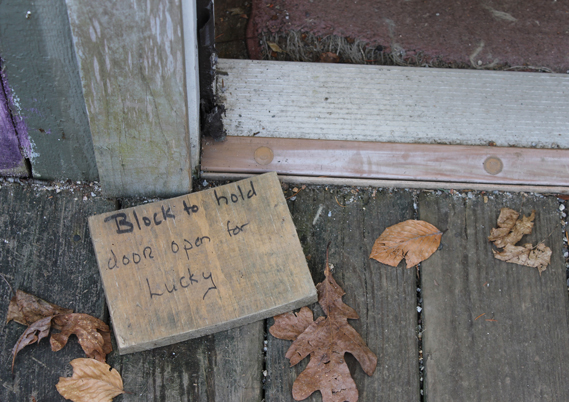 Block to hold
door open for
Lucky